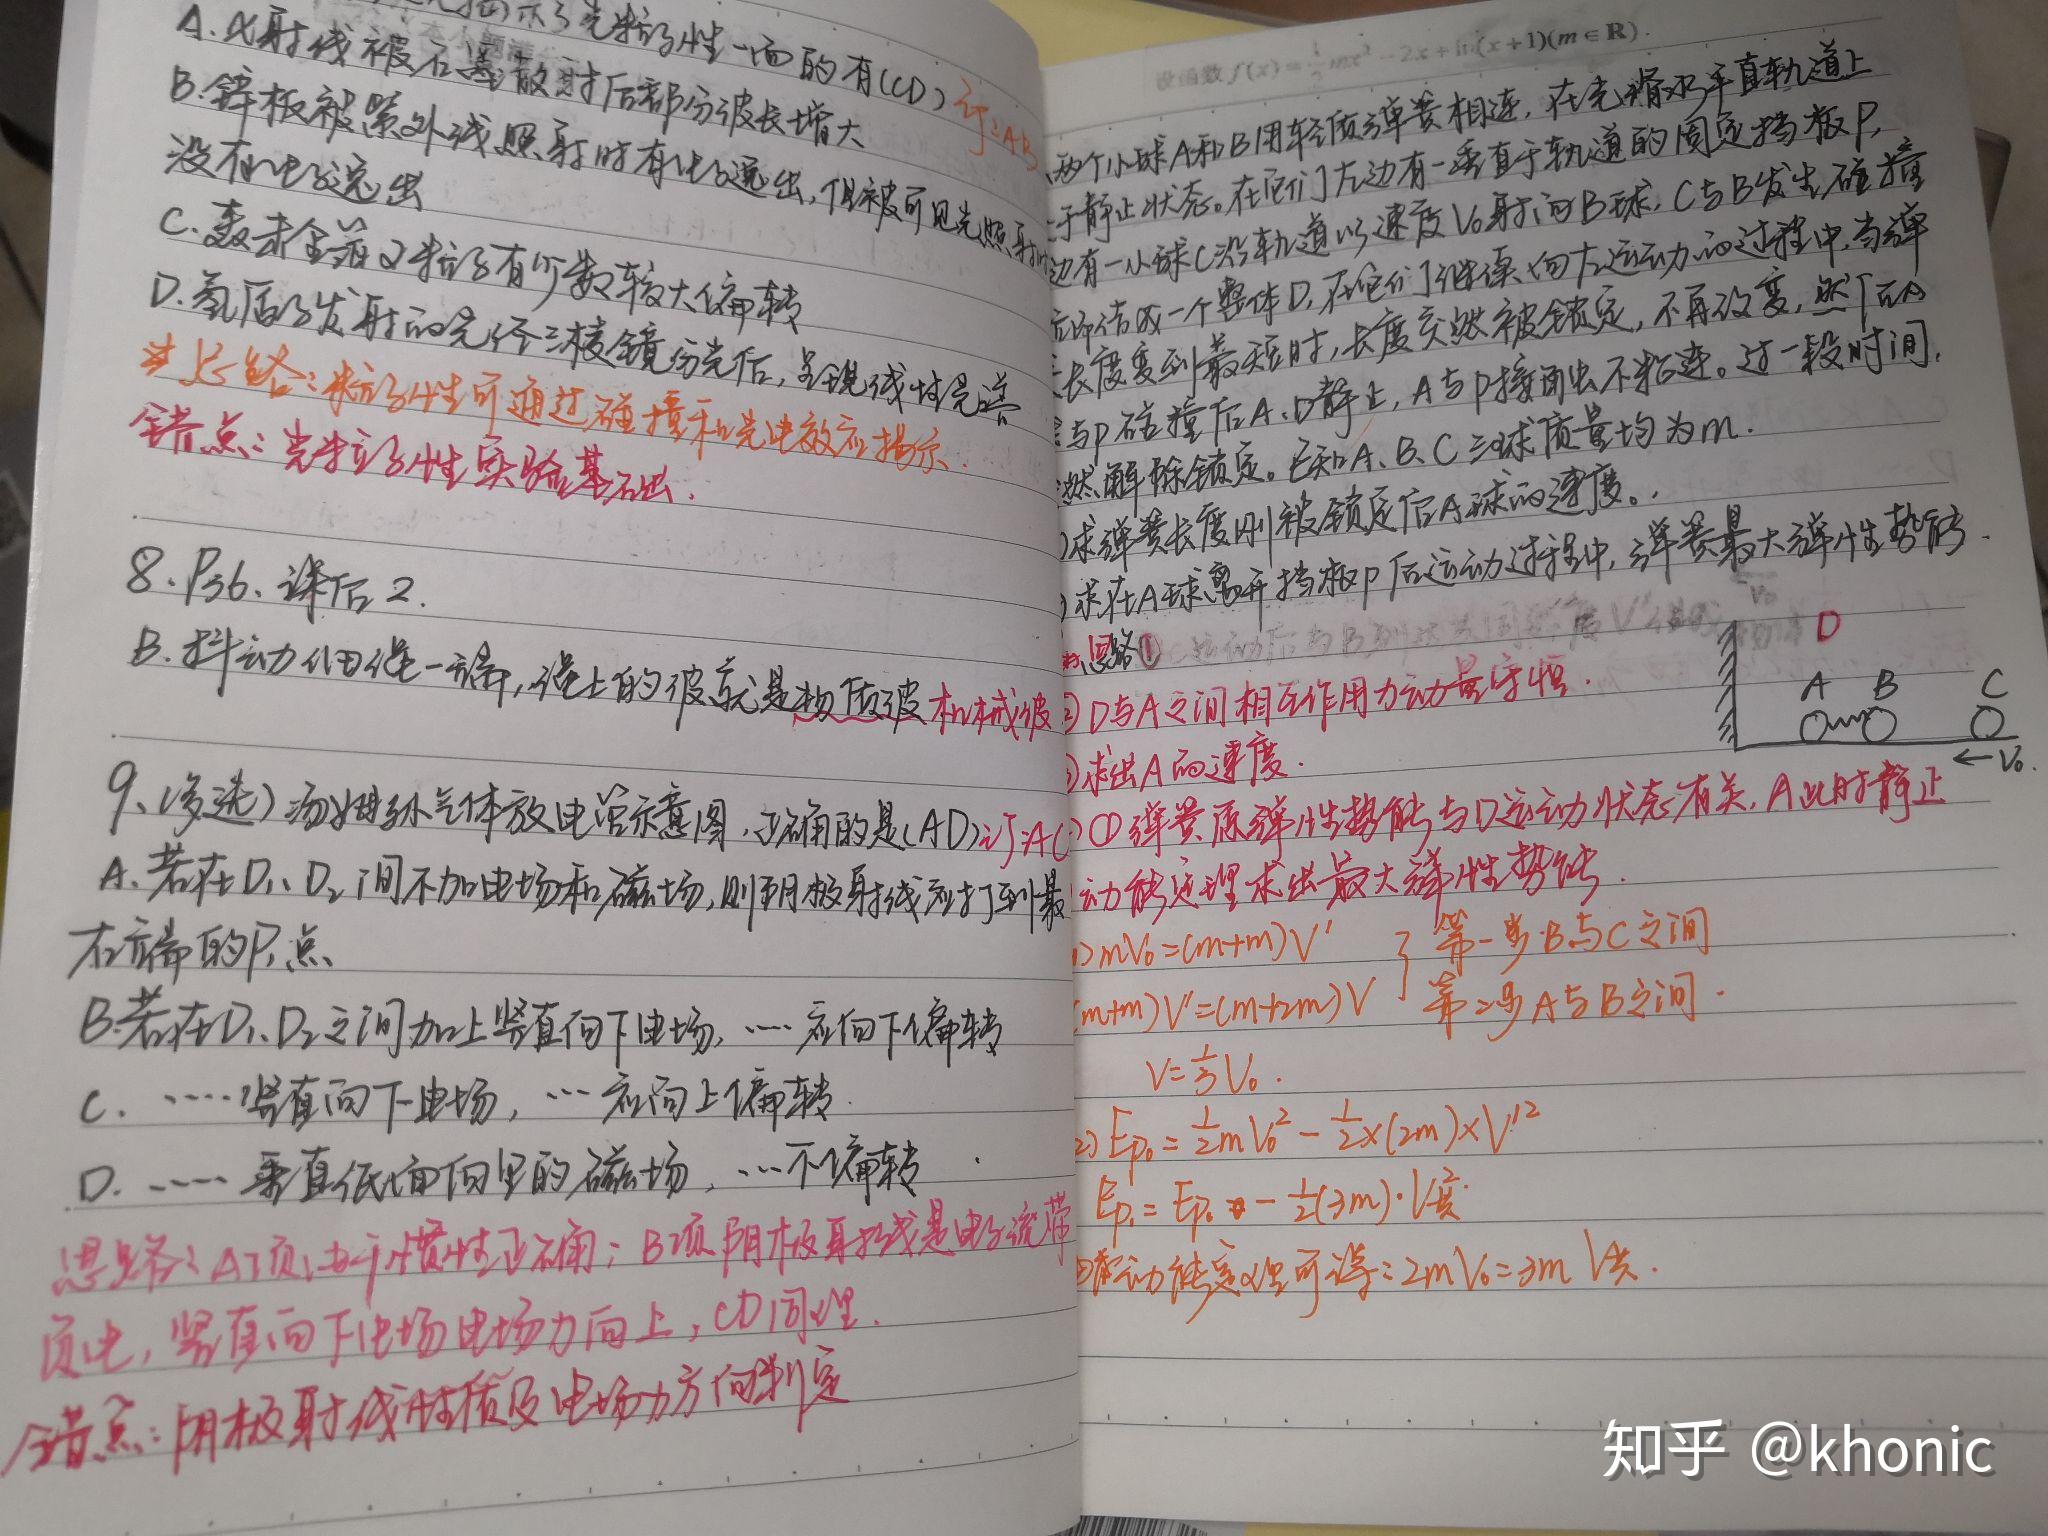 光粒子性一面的有(CD) 订:AB
A.α射线被石墨散射后部分波长增大
B.锌板被紫外线照射时有电子逸出,但被可见光照射时
没有电子逸出
C.轰击金箔α粒子有少数较大偏转
D.氢原子发射的光经三棱镜分光后,呈现线状光谱
思路:粒子性可通过碰撞和光电效应揭示.
错点:光粒子性实验基础.
8.P36.课后2.
B.抖动细绳一端,绳上的波就是物质波 机械波
9.(多选)汤姆孙气体放电管示意图,正确的是(AD)订:AC
A.若在D₁、D₂间不加电场和磁场,则阴极射线应打到最
右端的P₁点
B.若在D₁、D₂之间加上竖直向下电场,……应向下偏转
C.……竖直向下电场,…应向上偏转.
D.……垂直纸面向里的磁场,…不偏转.
思路:A项由于惯性正确;B项阴极射线是电子流带
负电,竖直向下电场电场力向上,CD同理.
错点:阴极射线性质及电场力方向判定
设函数f(x)=½mx²-2x+ln(x+1)(m∈R).
两个小球A和B用轻质弹簧相连,在光滑水平直轨道上
于静止状态。在它们左边有一垂直于轨道的固定挡板P,
边有一小球C沿轨道以速度V₀射向B球,C与B发生碰撞
立即结成一个整体D,在它们继续向左运动的过程中,当弹
长度变到最短时,长度突然被锁定,不再改变,然后A
与P碰撞后A、D静止,A与P接触出不粘连。过一段时间,
突然解除锁定。已知A、B、C三球质量均为m.
)求弹簧长度刚被锁定后A球的速度。
)求在A球离开挡板P后运动过程中,弹簧最大弹性势能.
思路①
D
A B C
←V₀.
2)D与A之间相互作用力动量守恒.
3)求出A的速度.
①弹簧原弹性势能与D运动状态有关,A此时静止
动能定理求出最大弹性势能.
1)mV₀=(m+m)V' 第一步.B与C之间
(m+m)V'=(m+2m)V 第二步A与B之间.
V=⅓V₀.
2)Ep₀=½mV₀²-½×(2m)×V'²
Ep₁=Ep₀-½(3m)·V共²
由动能定理可得:2mV₀=3mV共.
知乎 @khonic